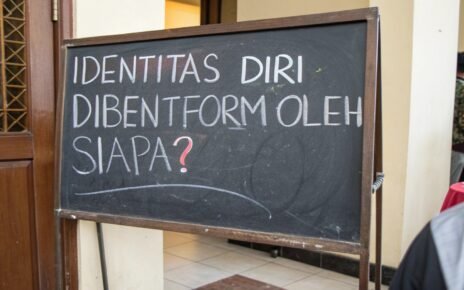 IDENTITAS DIRI
DIBENTFORM OLEH
SIAPA?